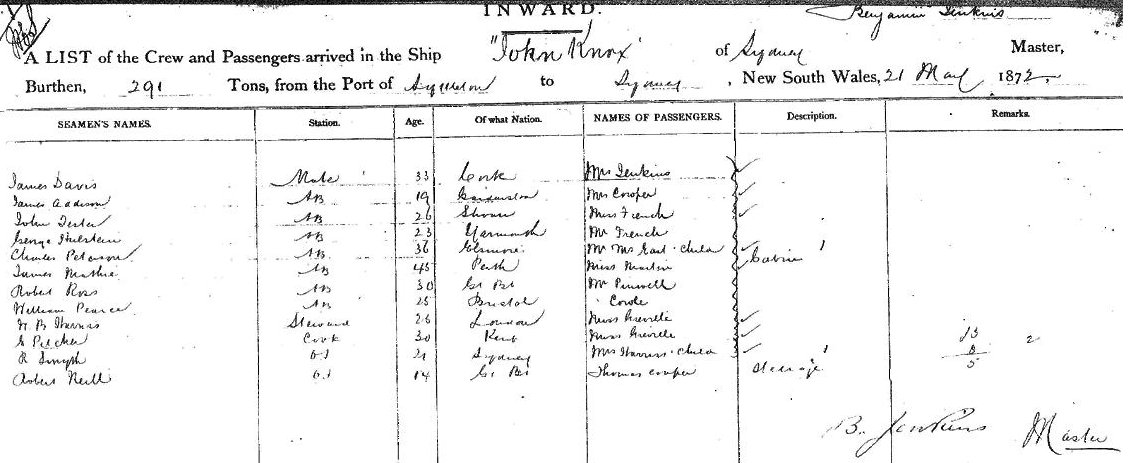 INWARD.
Benjamin Jenkins
A LIST of the Crew and Passengers arrived in the Ship "John Knox" of Sydney Master,
Burthen, 291 Tons, from the Port of to Sydney, New South Wales, 21 May 1872
SEAMEN'S NAMES. Station. Age. Of what Nation. NAMES OF PASSENGERS. Description. Remarks.
James Davis Mate 33 Cork Mrs Jenkins
James Addison AB 19 Mrs Cowper
John AB 26 Miss French
George AB 23 Yarmouth Mr French
Charles Peterson AB 36 Elsinore Mr Mrs East · Child 1
James Mathie AB 45 Perth Miss Martin Cabin
Robert Ross AB 30 Gt Bn Mr
William Pearce AB 25 Bristol
W. B. Steward 26 London Miss Greville
G Pilcher Cook 30 Kent Miss Greville 13 2
R Smyth OS 21 Sydney Mrs · Child 1 8
Robert Neill OS 14 Gt Bn Thomas Cowper Steerage 5
B. Jenkins Master